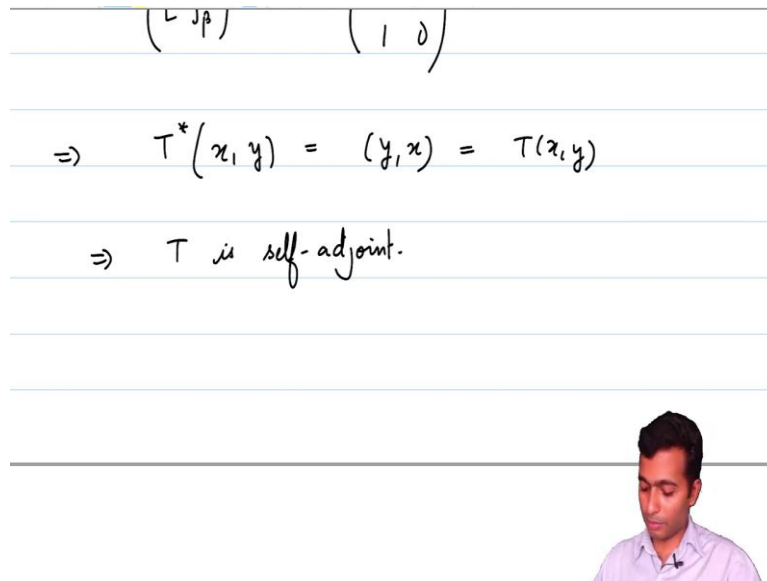 1 0
⇒ T*(x, y) = (y, x) = T(x, y)
⇒ T is self-adjoint.